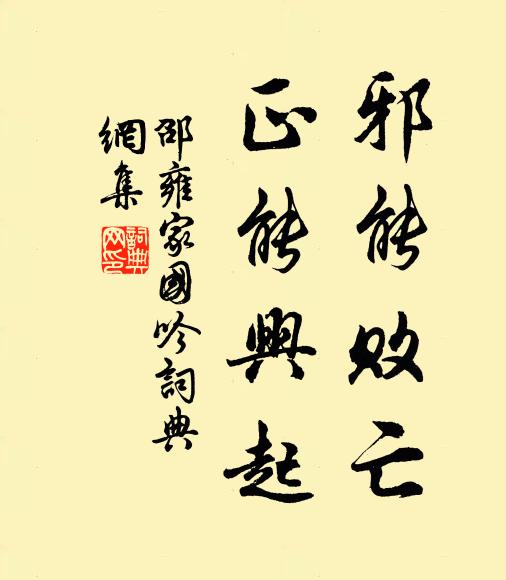 邪能败亡
正能興起
邵雍家國吟詞典
網集
詞典
网印